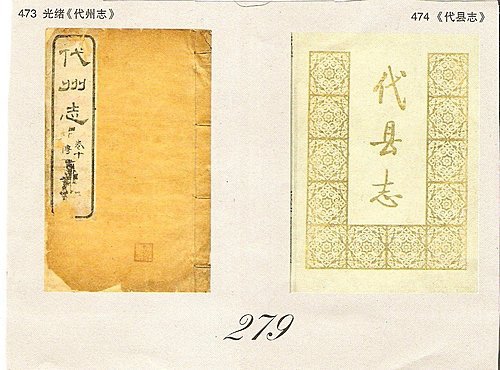 473 光绪《代州志》
474 《代县志》
代州志
卷十
代县志
279